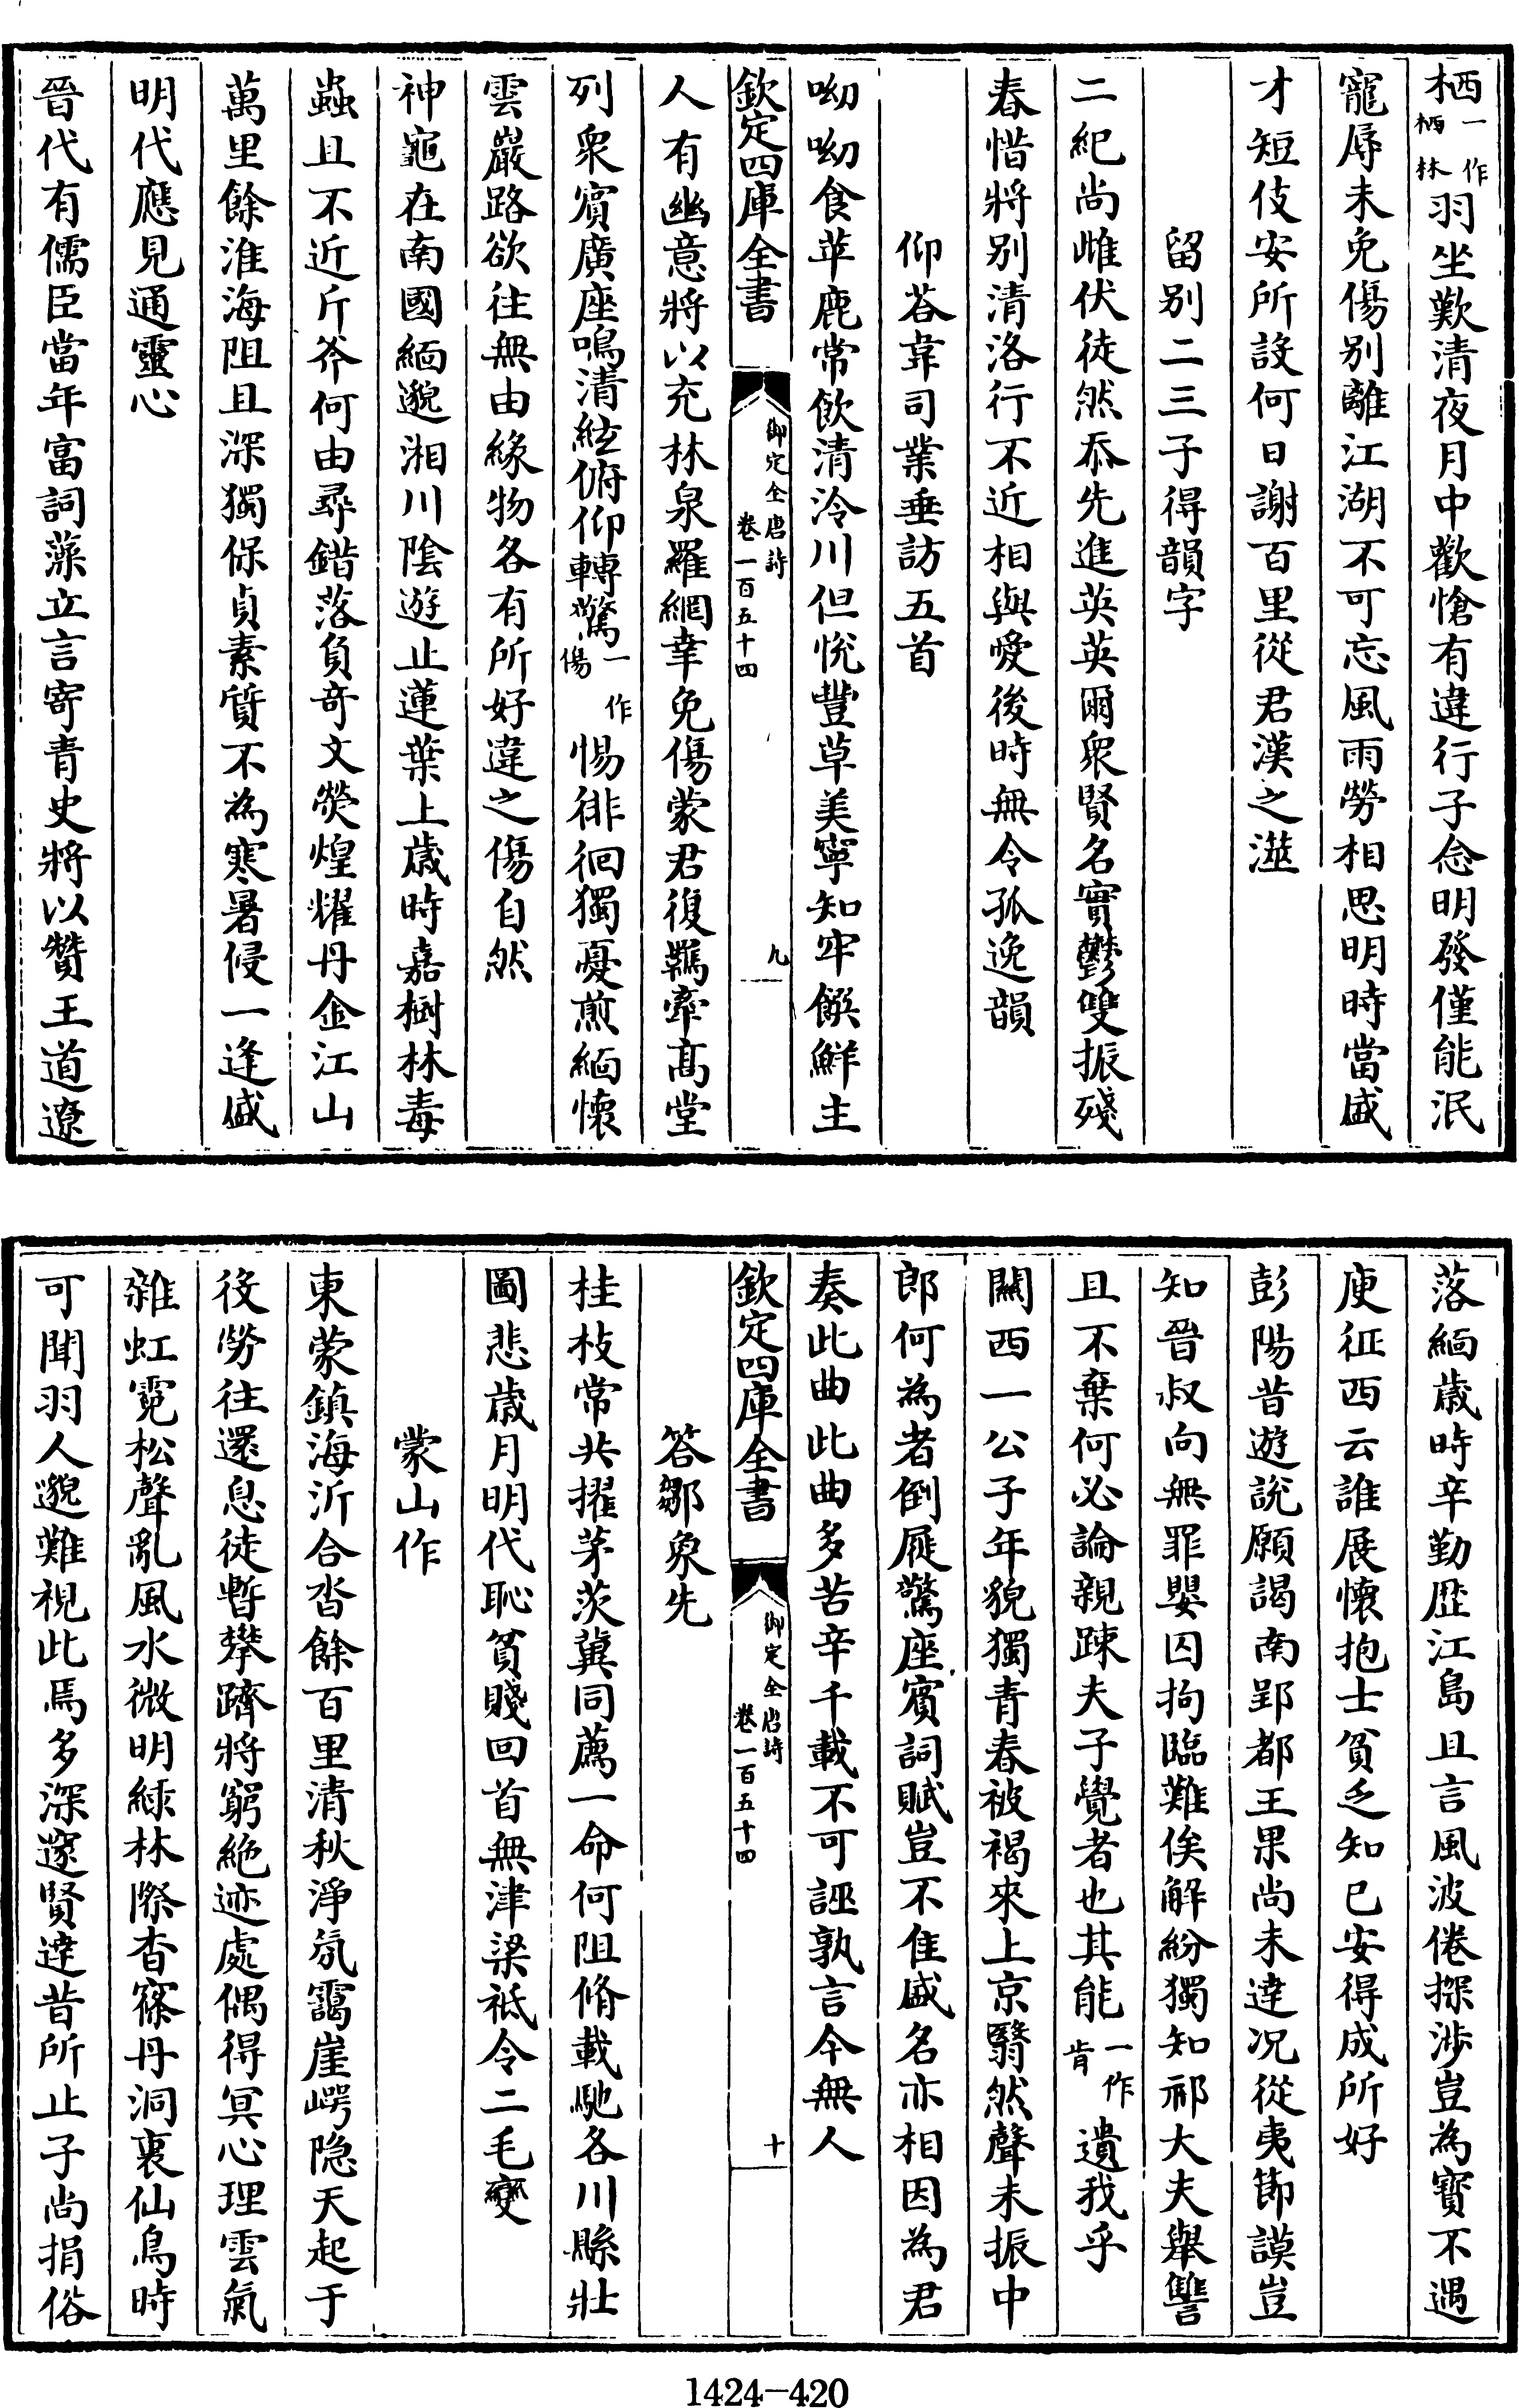 栖一作栖林羽坐歎清夜月中歡愴有違行子念明發僅能泯
寵辱未免傷别離江湖不可忘風雨勞相思明時當盛
才短伎安所設何日謝百里從君漢之澨
留别二三子得韻字
二紀尚雌伏徒然忝先進英英爾衆賢名實鬱雙振殘
春惜將别清洛行不近相與愛後時無令孤逸韻
仰荅韋司業垂訪五首
呦呦食苹鹿常飲清泠川但悅豐草美寧知牢饌鮮主
欽定四庫全書 御定全唐詩 卷一百五十四 九
人有幽意將以充林泉羅網幸免傷蒙君復羈牽高堂
列衆賓廣座鳴清絃俯仰轉驚一作傷惕徘徊獨憂煎緬懷
雲巖路欲往無由緣物各有所好違之傷自然
神龜在南國緬邈湘川陰遊止蓮葉上歲時嘉樹林毒
蟲且不近斤斧何由尋錯落負奇文熒煌耀丹金江山
萬里餘淮海阻且深獨保貞素質不為寒暑侵一逢盛
明代應見通靈心
晉代有儒臣當年富詞藻立言寄青史將以贊王道遼
落緬歲時辛勤歷江島且言風波倦探涉豈為寶不遇
庾征西云誰展懷抱士貧乏知己安得成所好
彭陽昔遊說願謁南郢都王果尚未達况從夷節謨豈
知晉叔向無罪嬰囚拘臨難俟解紛獨知祁大夫舉讐
且不棄何必論親疎夫子覺者也其能一作肯遺我乎
關西一公子年貌獨青春被褐來上京翳然聲未振中
郎何為者倒屣驚座賓詞賦豈不佳盛名亦相因為君
奏此曲此曲多苦辛千載不可誣孰言今無人
欽定四庫全書 御定全唐詩 卷一百五十四 十
答鄒象先
桂枝常共擢茅茨冀同薦一命何阻脩載馳各川縣壯
圖悲歲月明代恥貧賤回首無津梁祗令二毛變
蒙山作
東蒙鎮海沂合沓餘百里清秋淨氛靄崖崿隐天起于
役勞往還息徒暫攀躋將窮絶迹處偶得冥心理雲氣
雜虹霓松聲亂風水微明緑林際杳窱丹洞裏仙鳥時
可聞羽人邈難視此焉多深邃賢達昔所止子尚捐俗
1424-420